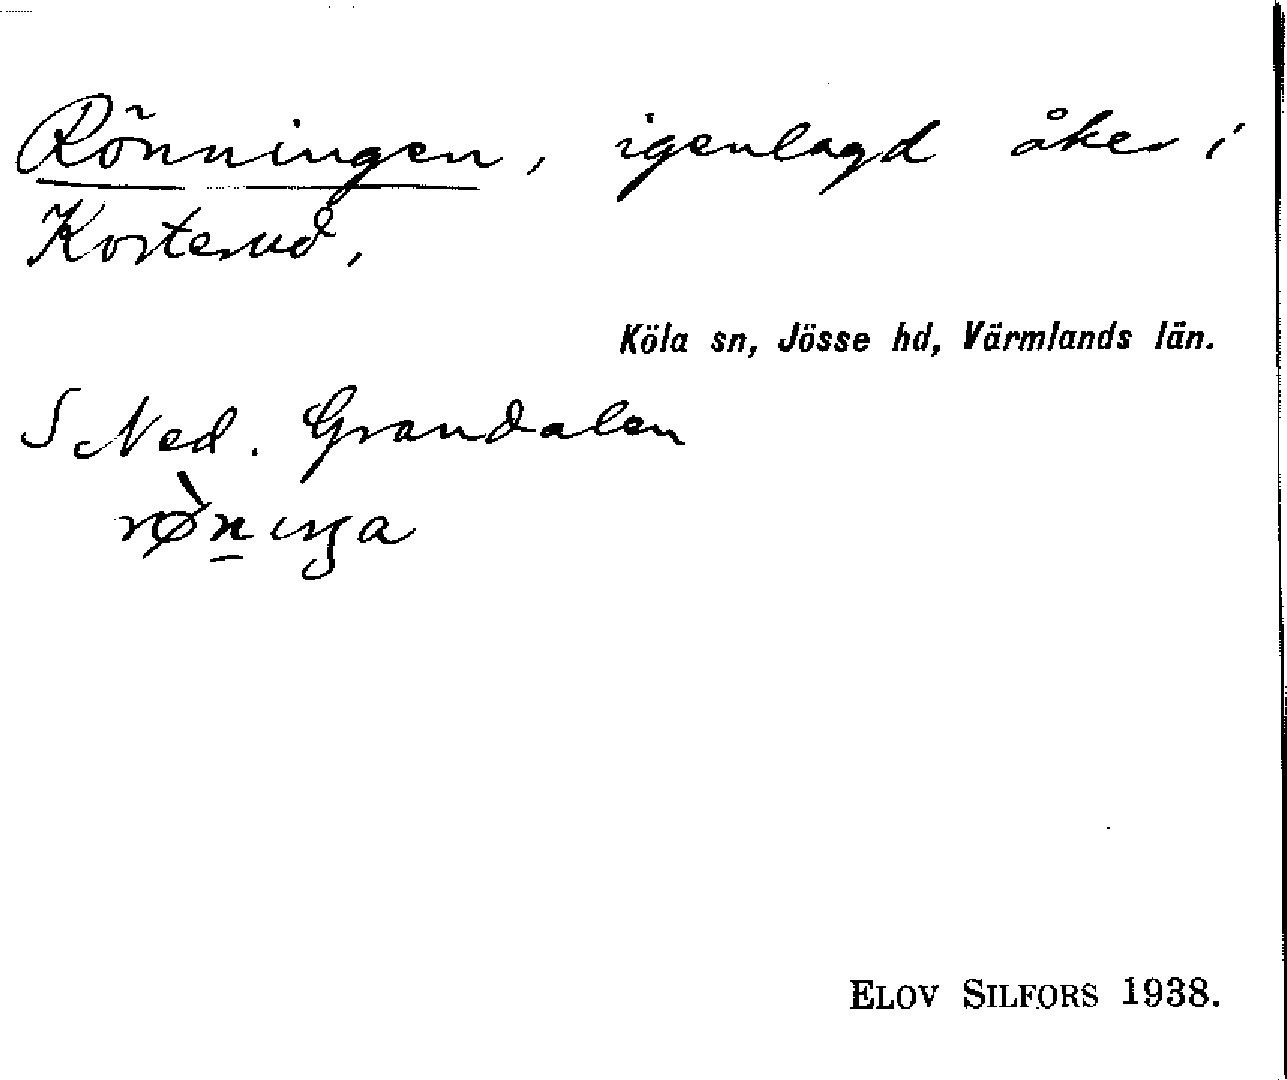 Rönningen, igenlagd åker i
Kosterud,
Köla sn, Jösse hd, Värmlands län.
S Ned. Grandalen
rø̀n̲ıŋa
ELOV SILFORS 1938.